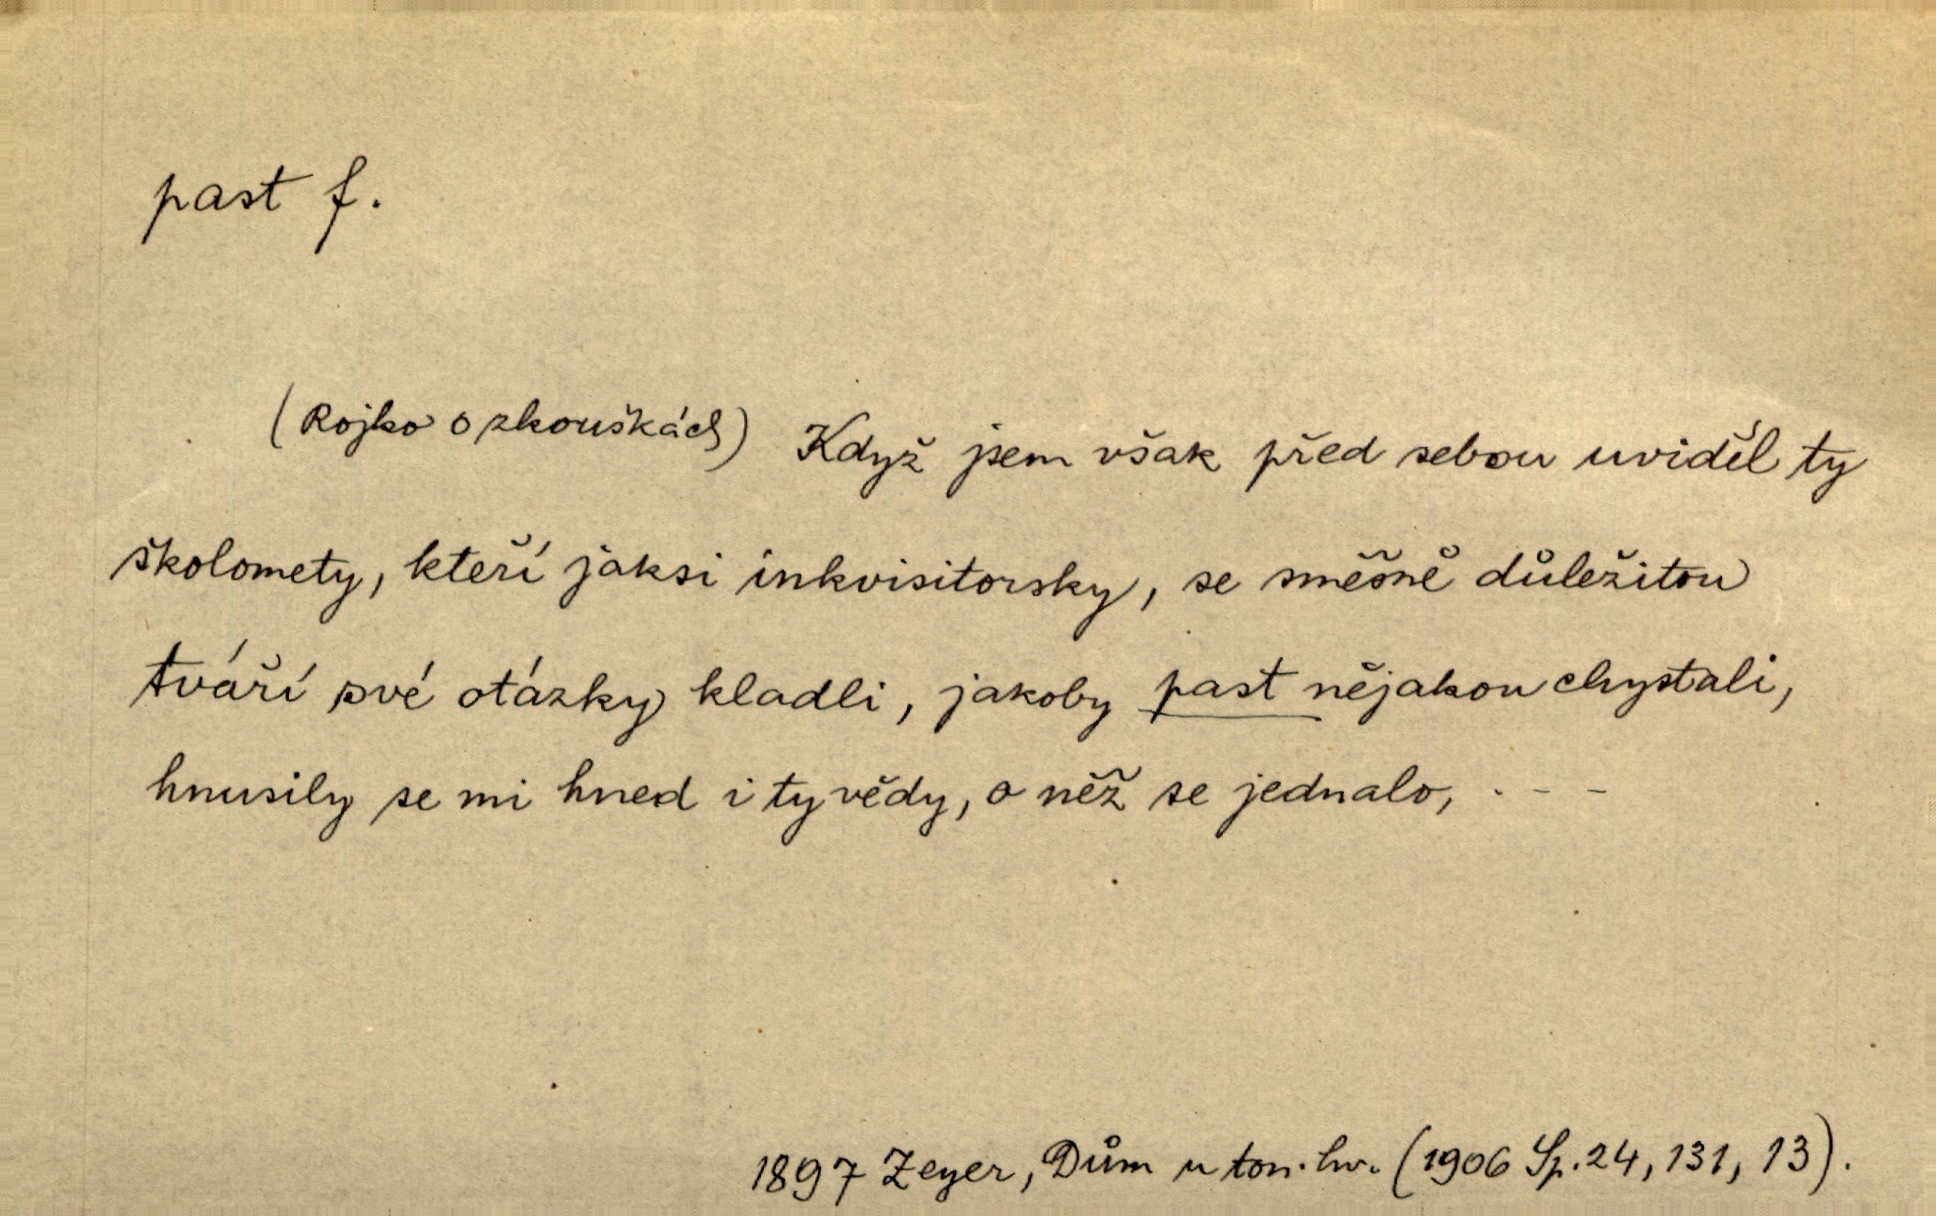 past f.
(Rojko o zkouškách) Když jsem však před sebou uviděl ty
školomety, kteří jaksi inkvisitorsky, se směšně důležitou
tváří své otázky kladli, jakoby past nějakou chystali,
hnusily se mi hned i ty vědy, o něž se jednalo, - - -
1897 Zeyer, Dům u ton. hv. (1906 Sp. 24, 131, 13).